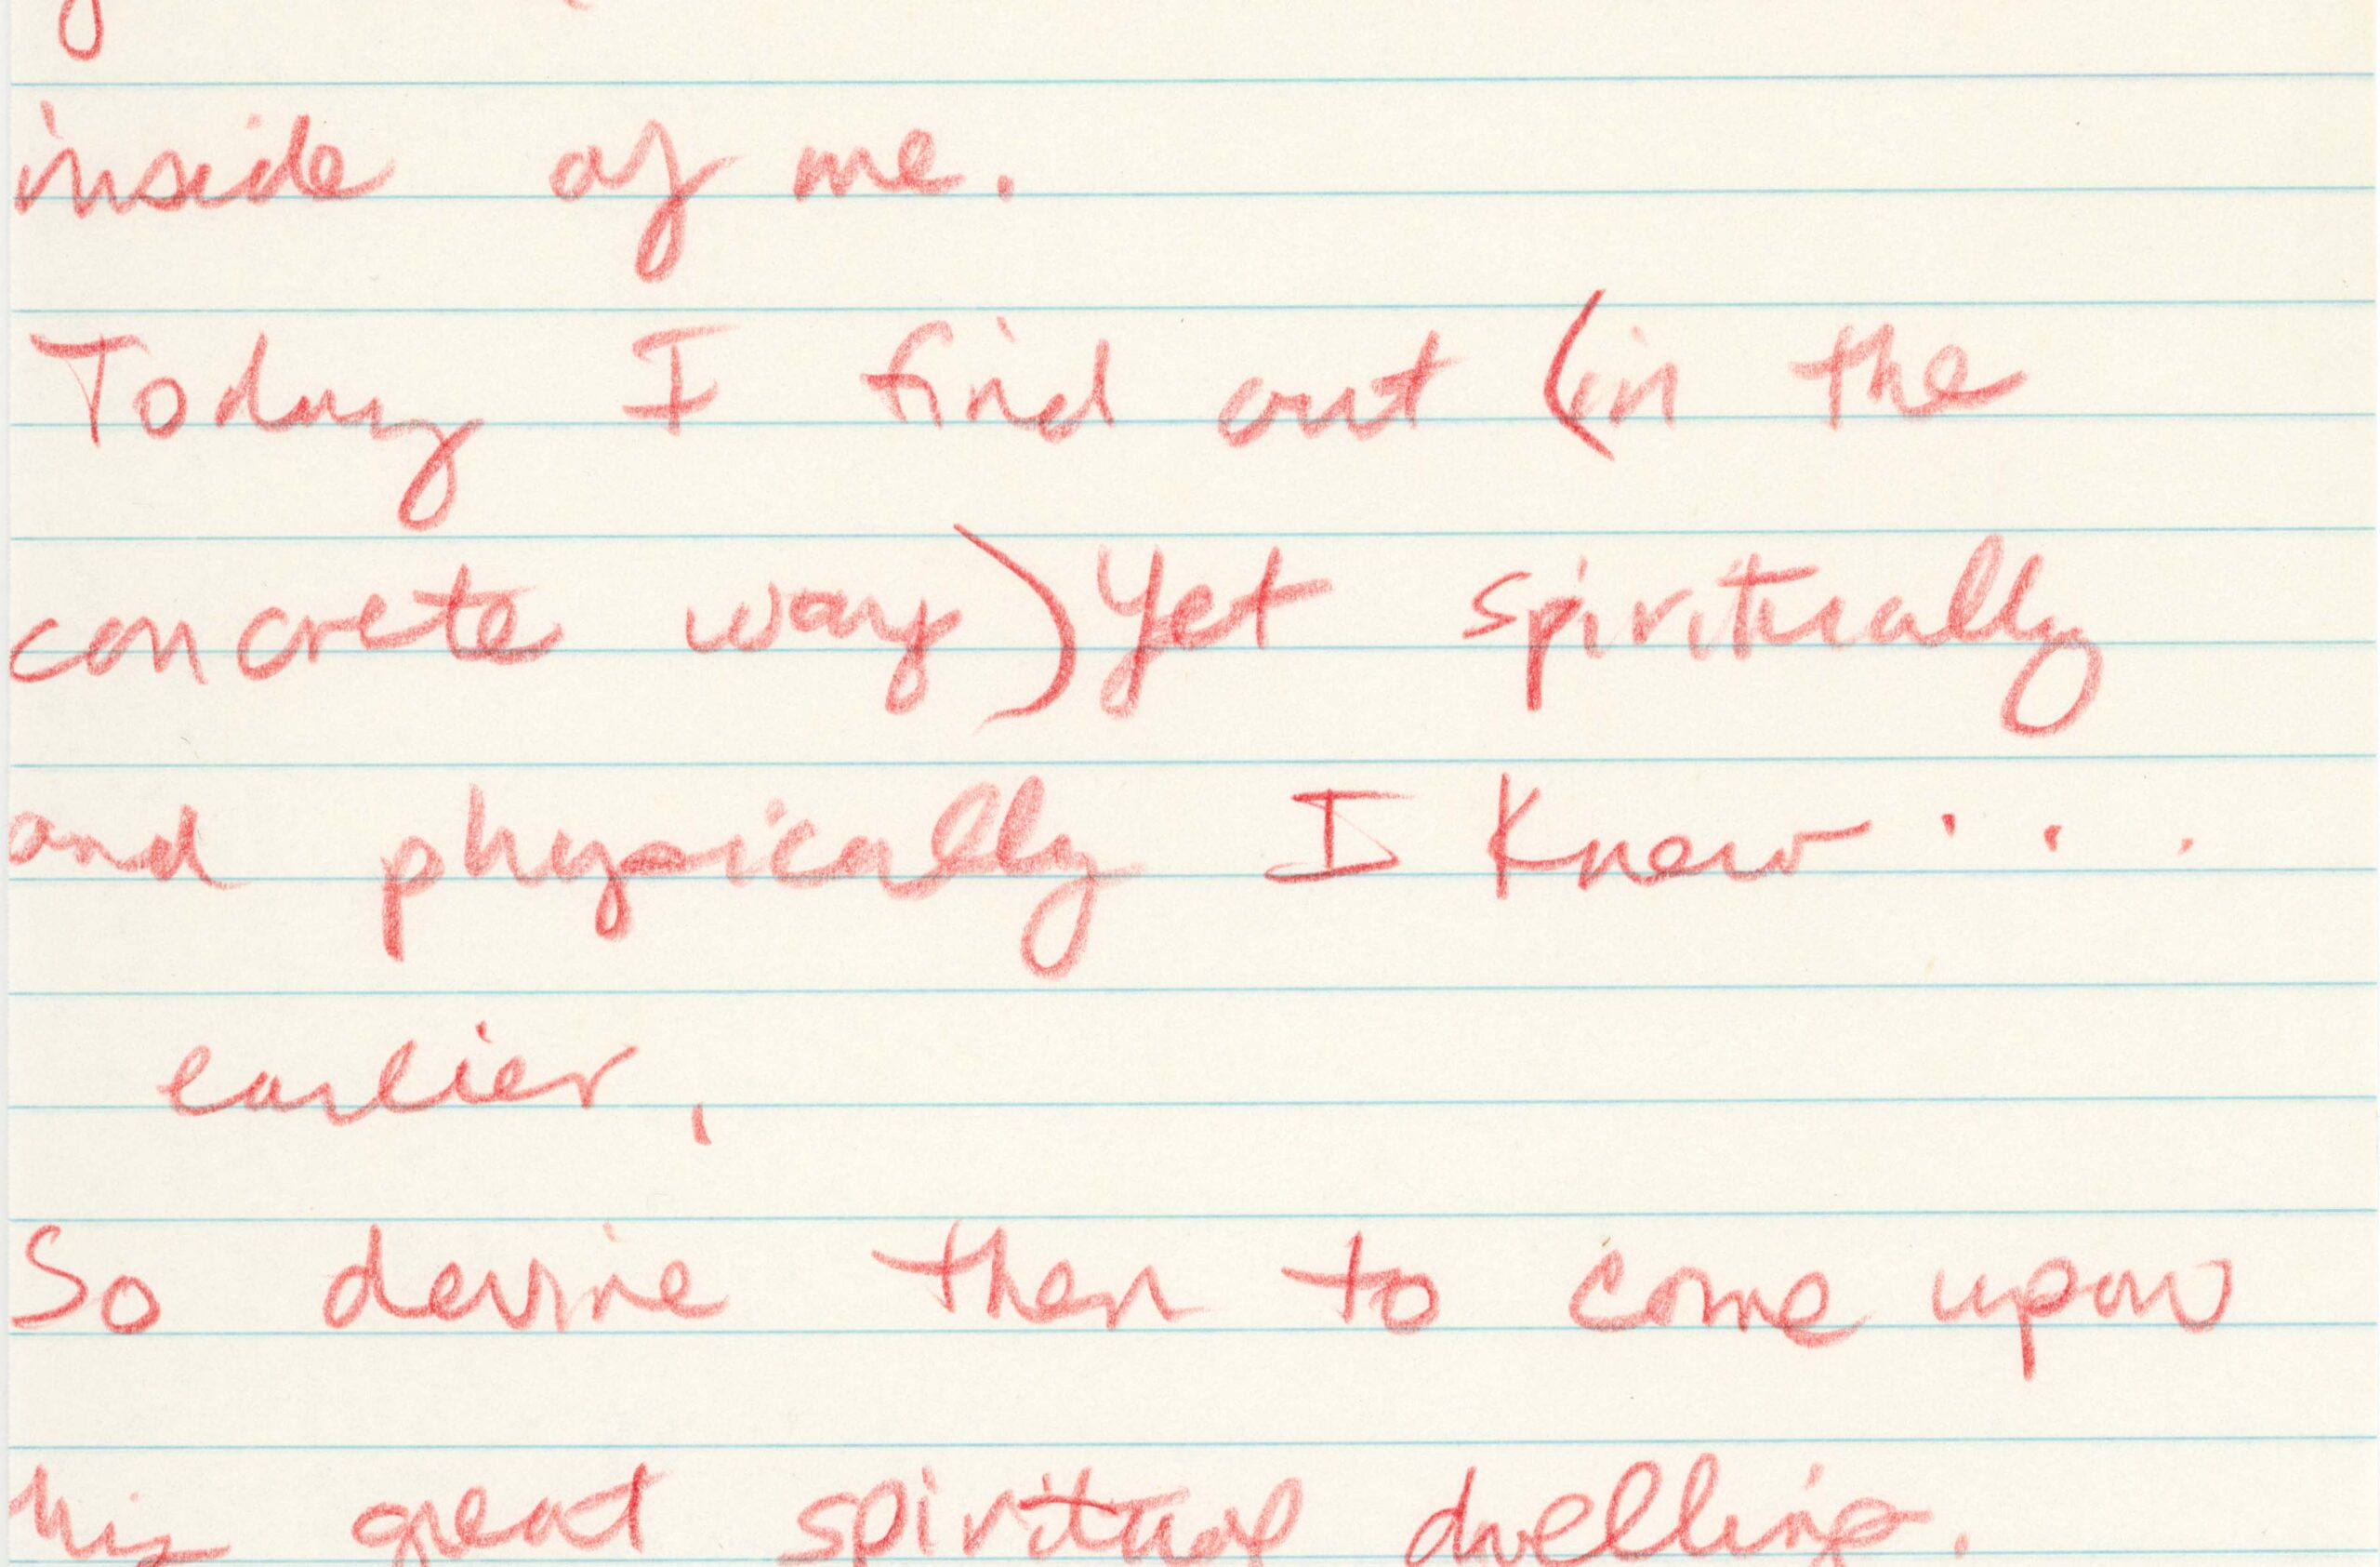 inside of me.
Today I find out (in the
concrete way) Yet spiritually
and physically I knew...
earlier,
So devine then to come upon
his great spiritual dwelling.